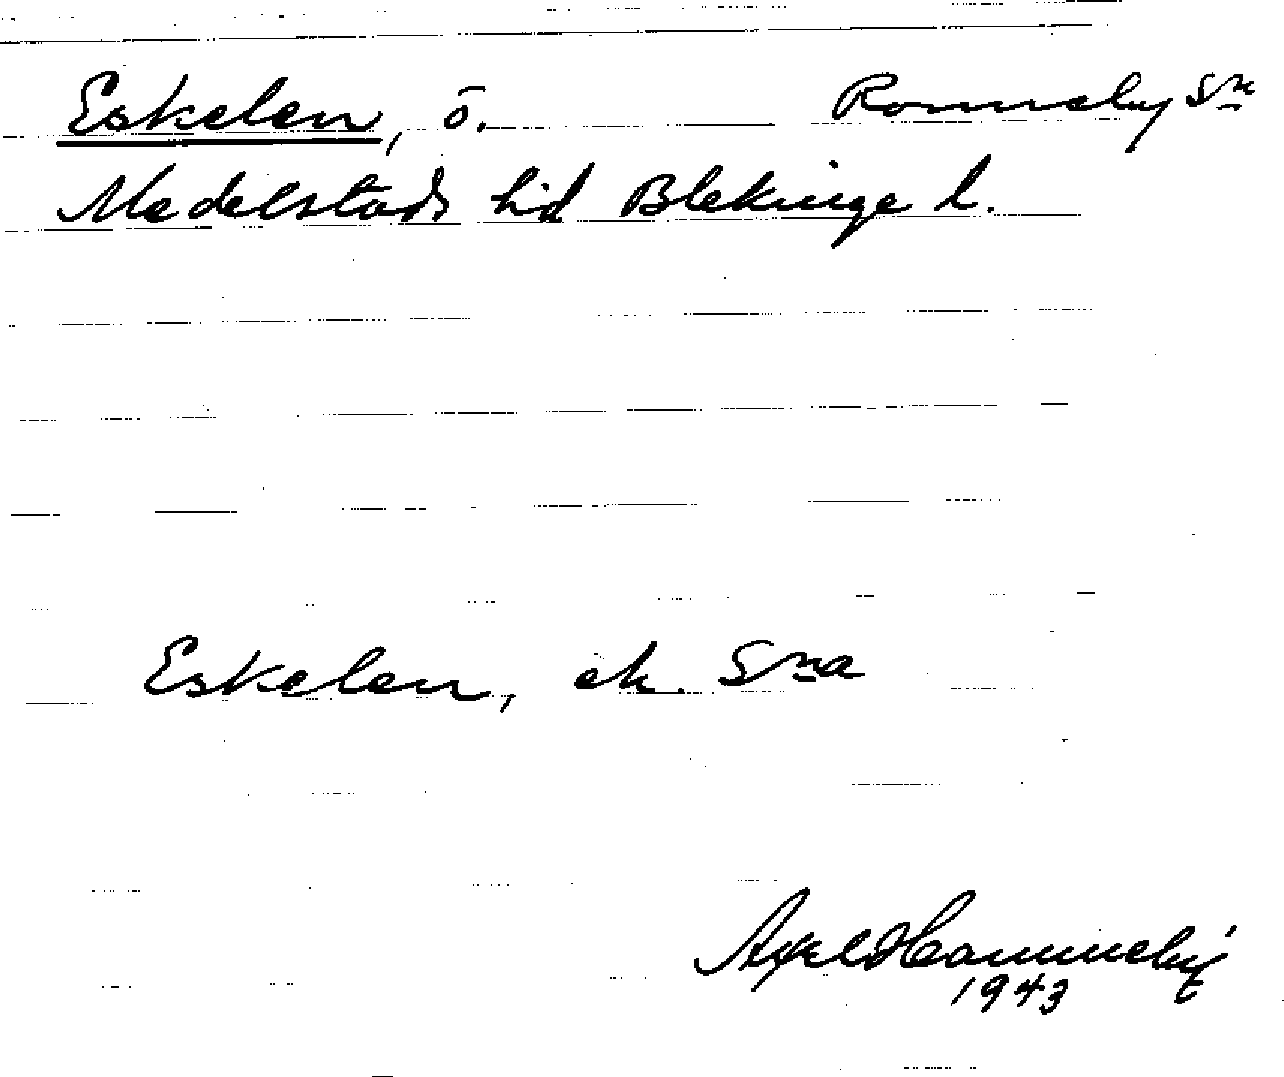 Eskelen, ö. Ronneby Sn
Medelstads hd Blekinge l.
Eskelen, ek. Sna
1943